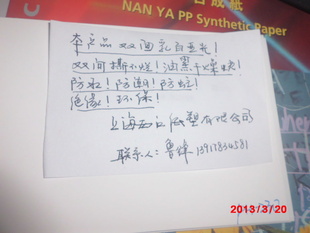 成紙
NAN YA PP Synthetic Paper
本产品双面乳白亚光!
双面撕不烂!油墨干燥快!
防水!防潮!防蛀!
绝缘!环保!
上海 纸塑有限公司
联系人:鲁 13917834581
2013/3/20